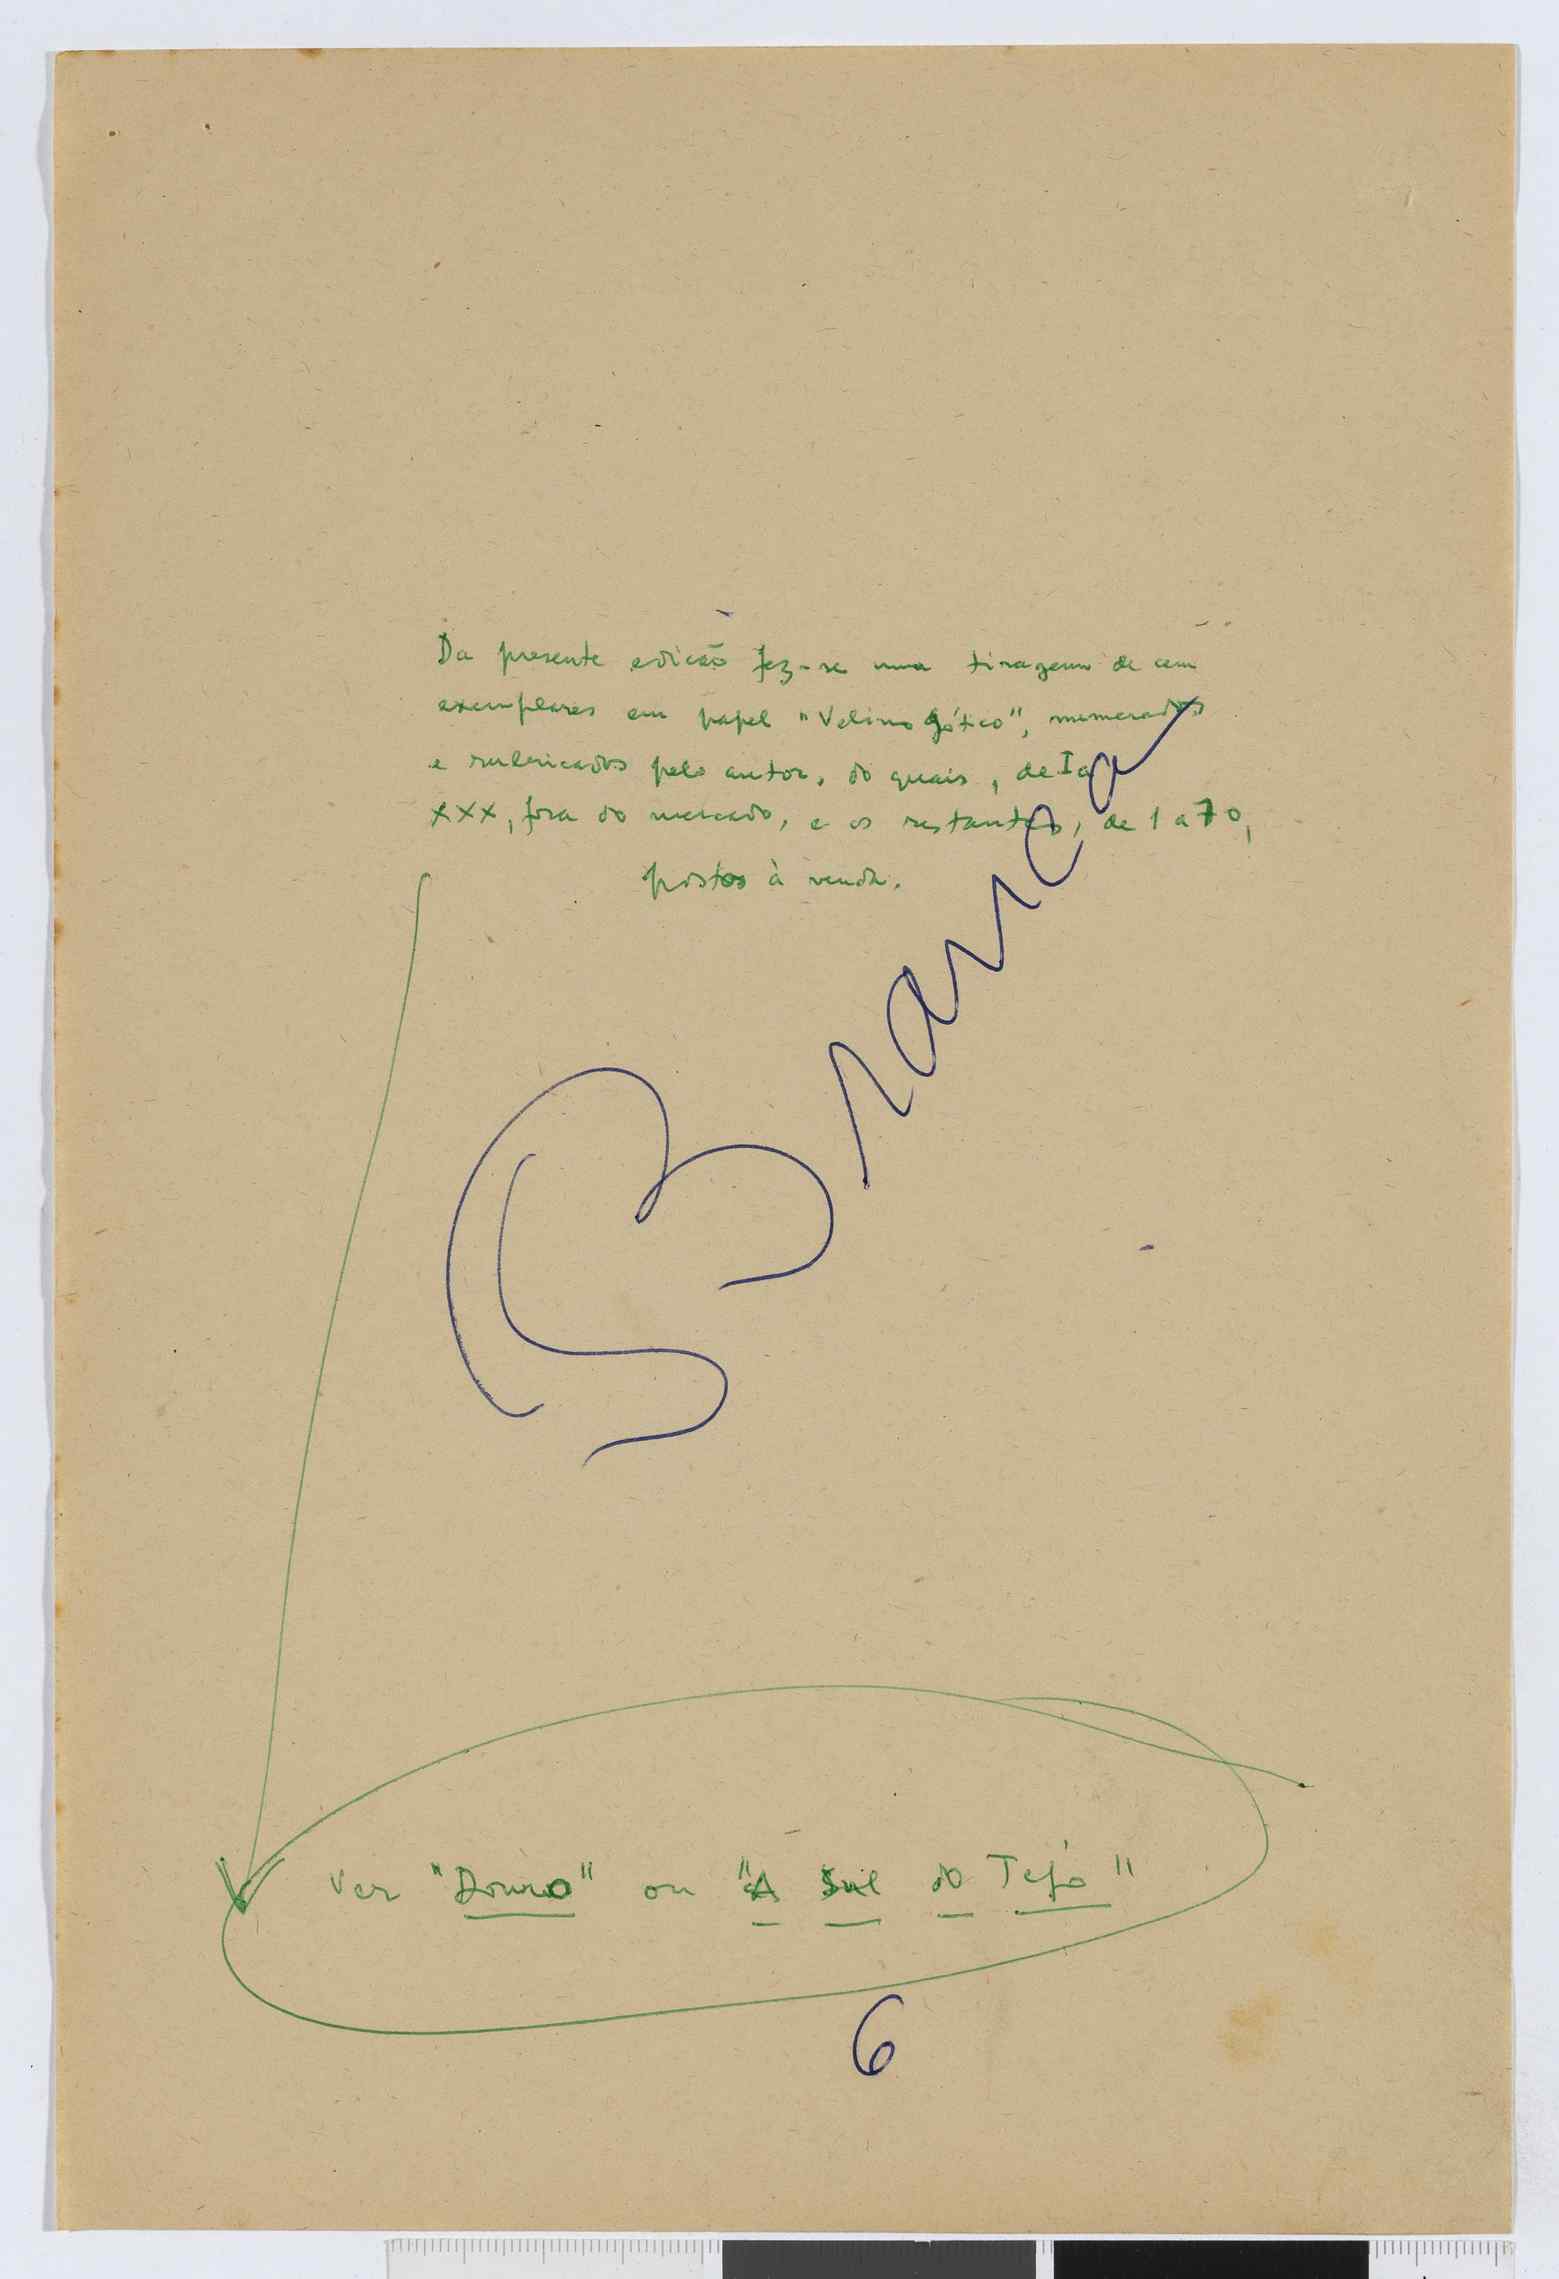 Da presente edição fez-se uma tiragem de cem
exemplares em papel "Velino gótico", numerados
e rubricados pelo autor, do quais, de I a
XXX, fora do mercado, e os restantes, de 1 a 70,
postos à venda.
Branca
Ver "Douro" ou "A Sul do Tejo"
6